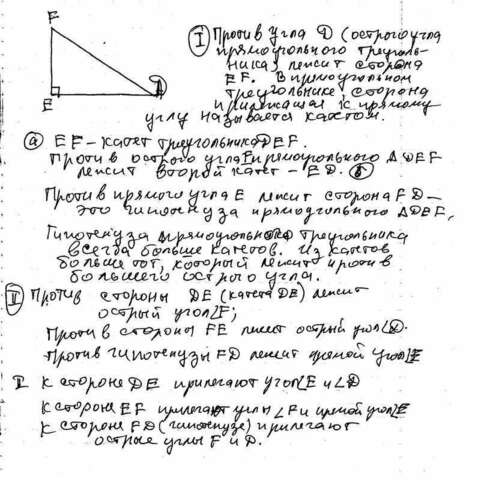 F
E
D
I Против угла D (острого угла
прямоугольного треуголь-
ника) лежит сторона
EF. В прямоугольном
треугольнике, сторона
прилежащая к прямому
углу называется катетом.
а EF – катет треугольника DEF.
Против острого угла F прямоугольного Δ DEF
лежит второй катет – ED. б
Против прямого угла E лежит сторона FD –
это гипотенуза прямоугольного ΔDEF,
Гипотенуза прямоугольного треугольника
всегда больше катетов. Из катетов
больше тот, который лежит против
большего острого угла.
II Против стороны DE (катета DE) лежит
острый угол ∠F;
Против стороны FE лежит острый угол ∠D.
Против гипотенузы FD лежит прямой угол ∠E
К стороне DE прилегают угол ∠E и ∠D
К стороне EF прилегают углы ∠F и прямой угол ∠E
К стороне FD (гипотенузе) прилегают
острые углы F и D.